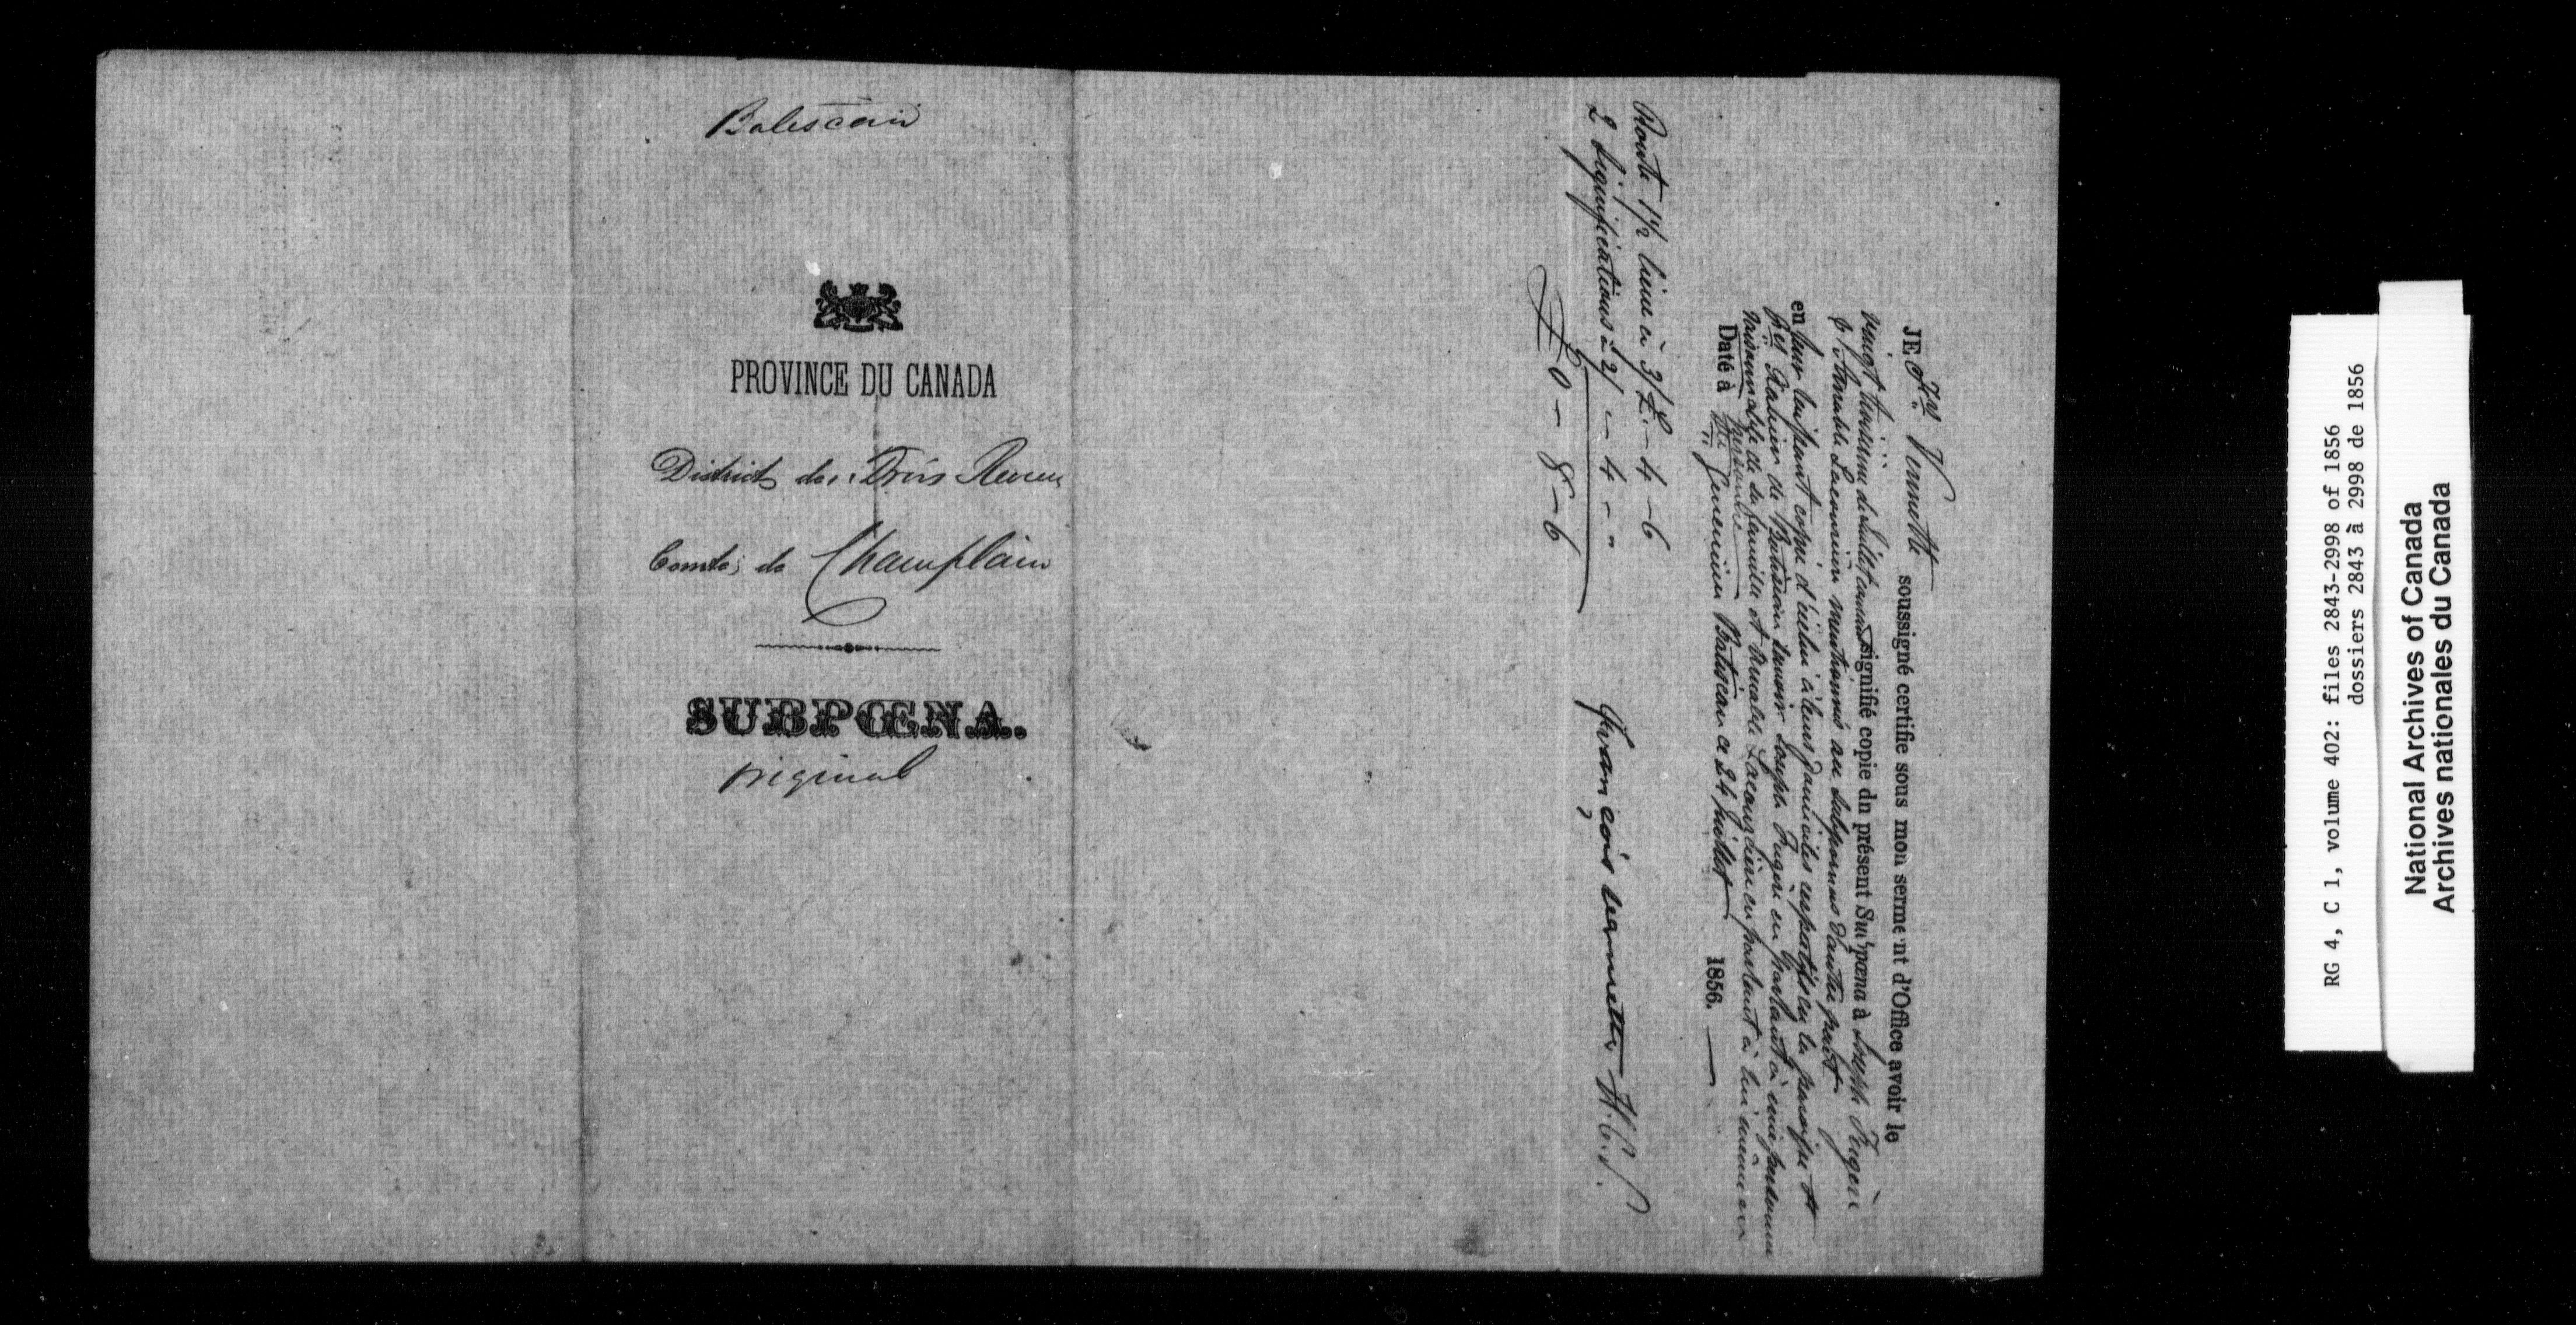 Batiscan
PROVINCE DU CANADA
District des Trois Rivieres
Comté de Champlain
SUBPŒNA.
original
JE Frs Vennette soussigné certifie sous mon serment d'Office avoir le
vingt troisieme de Juillet courant signifié copie du présent Subpœna à Joseph Fugère
& Amable Lacoursiere mentionnés au subpoena d'autre part
en leur laissant copie d'icelui à leurs domiciles respectifs en la paroisse
de Batiscan savoir Joseph Fugère en parlant à une personne
raisonnable de sa famille et Amable Lacoursière en parlant à lui même en
personne
Daté à Ste Geneviève Batiscan ce 24 juillet 1856.
Route 1½ lieue à 3/ £ - 4 - 6
2 Significations à 2/ - 4 - -
£ 0 - 8 - 6
François vennette H.C.S.
RG 4, C 1, volume 402: files 2843-2998 of 1856
dossiers 2843 à 2998 de 1856
National Archives of Canada
Archives nationales du Canada